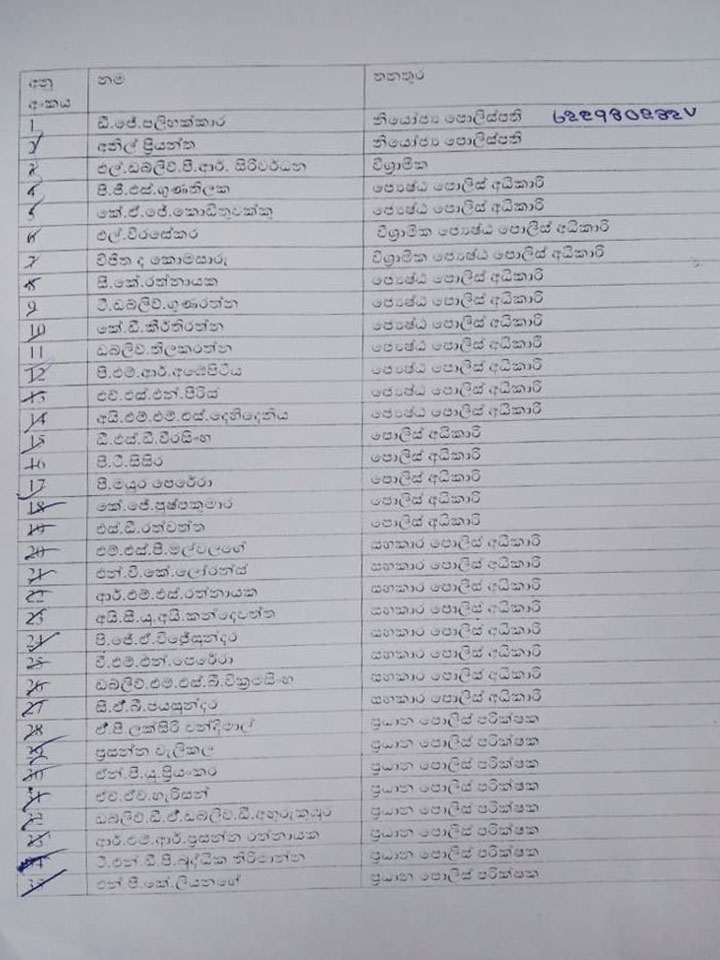 අනු අංකය නම තනතුර
1 ඩී.ජේ.පලිහක්කාර නියෝජ්‍ය පොලිස්පති 622930232V
අනිල් ප්‍රියන්ත නියෝජ්‍ය පොලිස්පති
එල්.ඩබ්ලිව්.පී.ආර්. සිරිවර්ධන විශ්‍රාමික
4 පී.ජී.එස්.ගුණතිලක ජ්‍යෙෂ්ඨ පොලිස් අධිකාරි
5 කේ.ඒ.ජේ.කොඩිතුවක්කු ජ්‍යෙෂ්ඨ පොලිස් අධිකාරි
6 එල්.වීරසේකර විශ්‍රාමික ජ්‍යෙෂ්ඨ පොලිස් අධිකාරි
7 විජිත ද කොමසාරු විශ්‍රාමික ජ්‍යෙෂ්ඨ පොලිස් අධිකාරි
8 සී.කේ.රත්නායක ජ්‍යෙෂ්ඨ පොලිස් අධිකාරි
9 ටී.ඩබ්ලිව්.ගුණරත්න ජ්‍යෙෂ්ඨ පොලිස් අධිකාරි
10 කේ.ඩී.කීර්තිරත්න ජ්‍යෙෂ්ඨ පොලිස් අධිකාරි
11 ඩබ්ලිව්.තිලකරත්න ජ්‍යෙෂ්ඨ පොලිස් අධිකාරි
12 පී.එම්.ආර්.අඹේපිටිය ජ්‍යෙෂ්ඨ පොලිස් අධිකාරි
13 එච්.එස්.එන්.පීරිස් ජ්‍යෙෂ්ඨ පොලිස් අධිකාරි
14 අයි.එම්.එම්.එස්.දෙහිදෙනිය ජ්‍යෙෂ්ඨ පොලිස් අධිකාරි
15 ඩී.එස්.ඩී.වීරසිංහ පොලිස් අධිකාරි
16 පී.ටී.සිසිර පොලිස් අධිකාරි
17 පී.මයුර පෙරේරා පොලිස් අධිකාරි
18 කේ.ජේ.පුෂ්පකුමාර පොලිස් අධිකාරි
19 එස්.ඩී.රත්වත්ත පොලිස් අධිකාරි
20 එම්.එස්.පී.මල්වලගේ සහකාර පොලිස් අධිකාරි
21 එන්.වී.කේ.ලෝරන්ස් සහකාර පොලිස් අධිකාරි
22 ආර්.එම්.එස්.රත්නායක සහකාර පොලිස් අධිකාරි
23 අයි.සී.යූ.අයි.කන්දෙවත්ත සහකාර පොලිස් අධිකාරි
24 පී.ජේ.ඒ.විජේසුන්දර සහකාර පොලිස් අධිකාරි
25 වී.එම්.එන්.පෙරේරා සහකාර පොලිස් අධිකාරි
26 ඩබ්ලිව්.එම්.එස්.බී.වික්‍රමසිංහ සහකාර පොලිස් අධිකාරි
27 සී.ඒ.බී.ජයසුන්දර සහකාර පොලිස් අධිකාරි
28 ඒ.පී.ලක්සිරි චන්දිමාල් ප්‍රධාන පොලිස් පරීක්ෂක
ප්‍රසන්න වැලිකල ප්‍රධාන පොලිස් පරීක්ෂක
ඒන්.පී.යූ.ප්‍රියංකර ප්‍රධාන පොලිස් පරීක්ෂක
ඒච්.ඒච්.හැරිසන් ප්‍රධාන පොලිස් පරීක්ෂක
ඩබ්ලිව්.ඩී.ඒ.ඩබ්ලිව්.ඩී. ප්‍රධාන පොලිස් පරීක්ෂක
ආර්.එම්.ආර්.ප්‍රසන්න රත්නායක ප්‍රධාන පොලිස් පරීක්ෂක
ටී.එන්.ඩී.පී.බුද්ධික කිරිමාන්න ප්‍රධාන පොලිස් පරීක්ෂක
එන්.පී.කේ.ලියනගේ ප්‍රධාන පොලිස් පරීක්ෂක